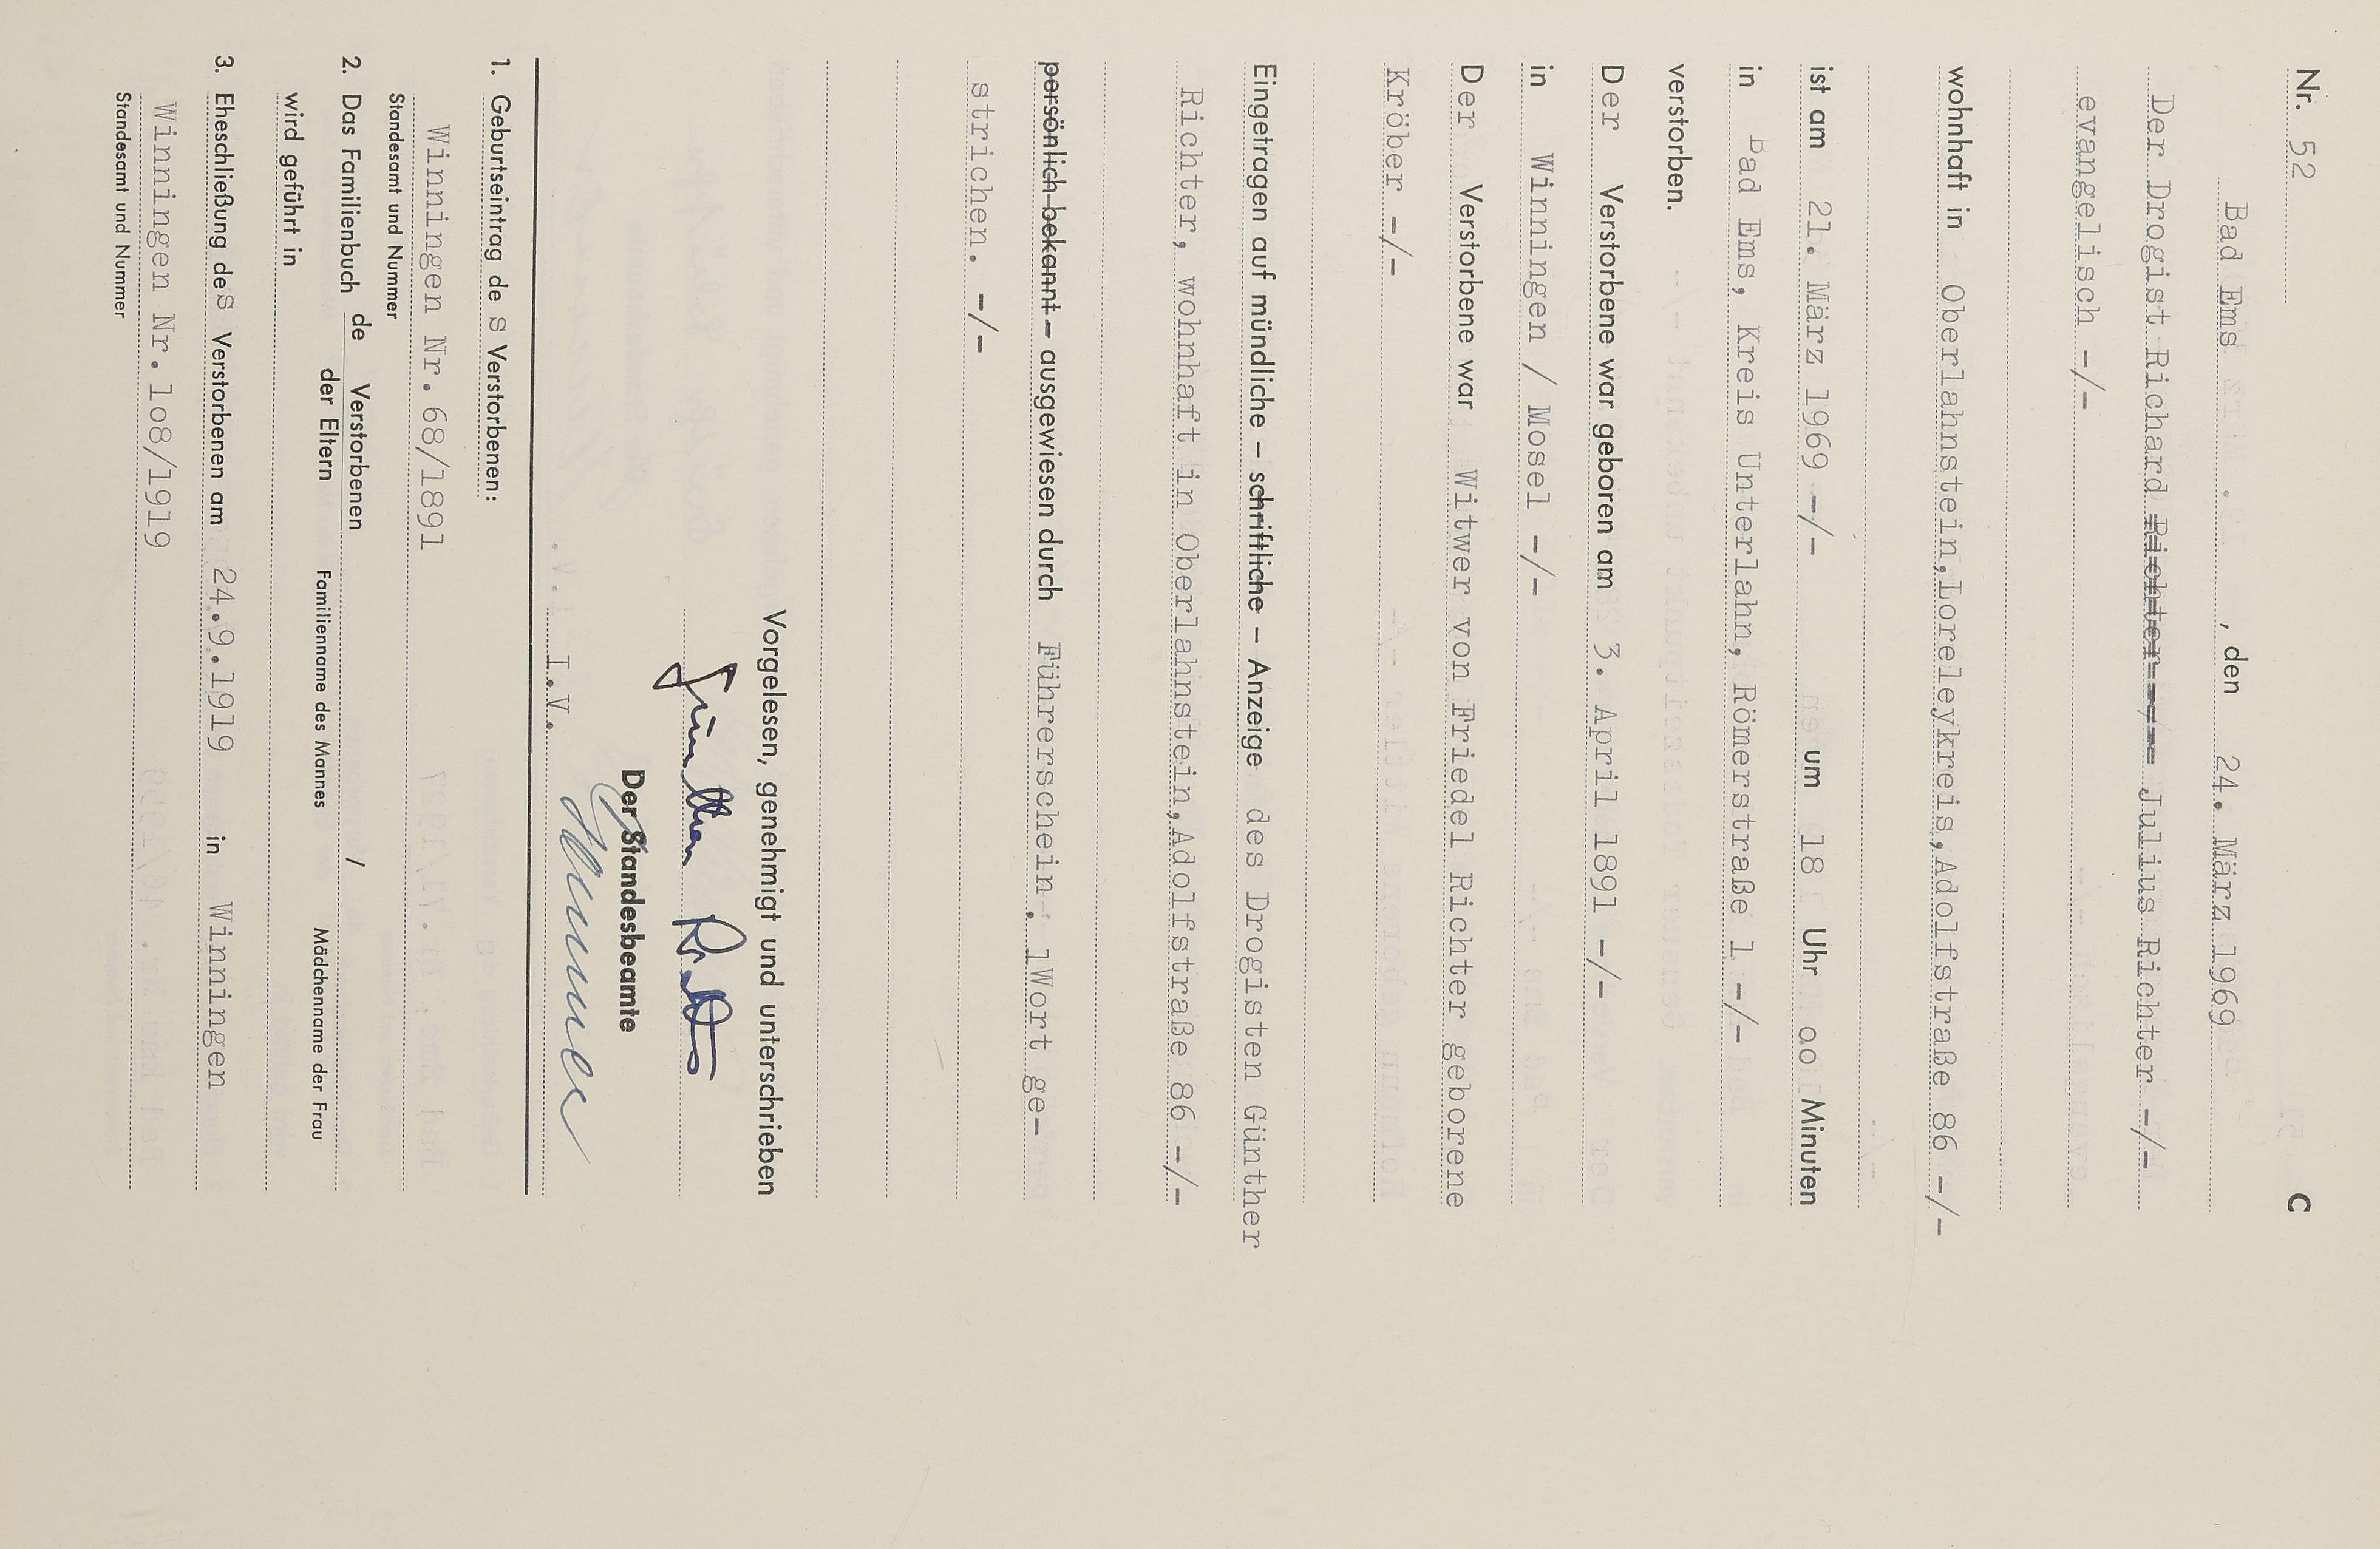 Nr. 52 C
Bad Ems , den 24. März 1969
Der Drogist Richard Richter -/- Julius Richter -/-
evangelisch -/-
wohnhaft in Oberlahnstein,Loreleykreis,Adolfstraße 86 -/-
ist am 21. März 1969 -/- um 18 Uhr oo Minuten
in Bad Ems, Kreis Unterlahn, Römerstraße 1 -/-
verstorben.
Der Verstorbene war geboren am 3. April 1891 -/-
in Winningen / Mosel -/-
Der Verstorbene war Witwer von Friedel Richter geborene
Kröber -/-
Eingetragen auf mündliche – schriftliche – Anzeige des Drogisten Günther
Richter, wohnhaft in Oberlahnstein,Adolfstraße 86 -/-
persönlich bekannt – ausgewiesen durch Führerschein. 1Wort ge-
strichen. -/-
Vorgelesen, genehmigt und unterschrieben
Günther
Der Standesbeamte
I.V.
1. Geburtseintrag des Verstorbenen:
Winningen Nr.68/1891
Standesamt und Nummer
2. Das Familienbuch de Verstorbenen /
der Eltern Familienname des Mannes Mädchenname der Frau
wird geführt in
3. Eheschließung des Verstorbenen am 24.9.1919 in Winningen
Winningen Nr.1o8/1919
Standesamt und Nummer